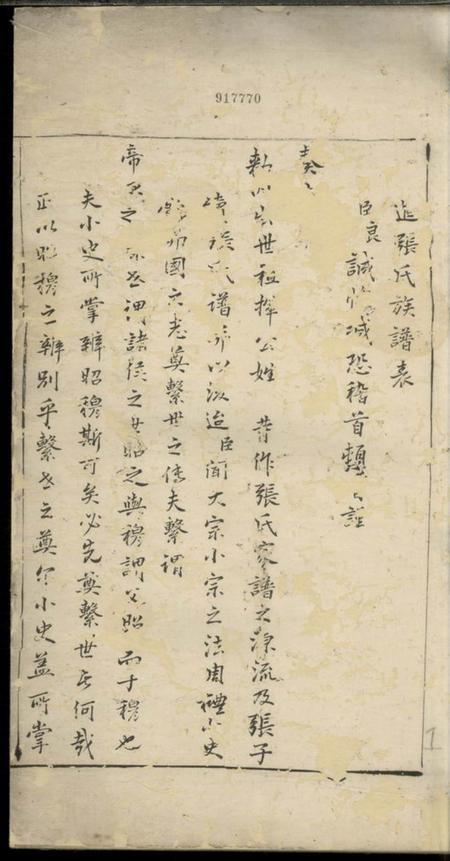 917770
進張氏族譜表
臣良誠惶誠恐稽首頓
奏
勑以宗世祖揮公姓 昔作張氏家譜之源流及張子
族氏譜 以 迨臣聞大宗小宗之法周禮小史
邦國之志奠繫世之傳夫繫謂
帝 之 世謂諸侯之世昭之與穆謂父昭而子穆也
夫小史所掌辨昭穆斯可矣必先奠繫世者何哉
正以昭穆之辨別乎繫世之奠 小史蓋所掌
1